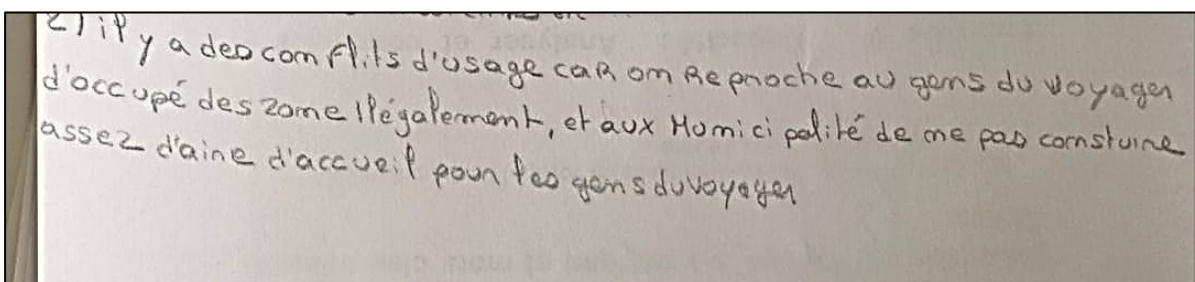 2) il y a des conflits d'usage car on Reproche au gens du voyager
d'occupé des zone llégalement, et aux Municipalité de ne pas constuire
assez d'aire d'accueil pour les gens du voyager